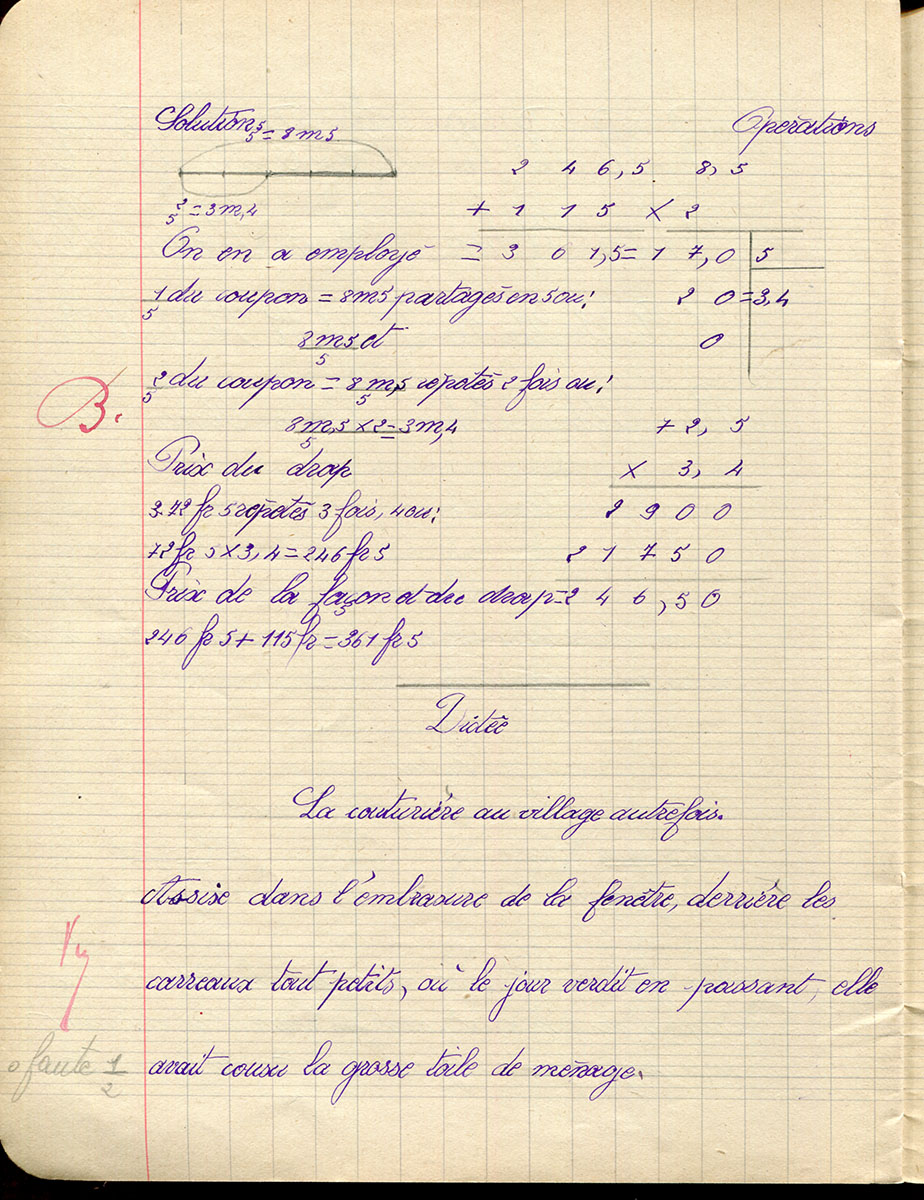 Solution Opérations
5/5 = 8m5
2 4 6,5 8,5
2/5 = 3m,4 + 1 1 5 × 2
On en a employé = 3 6 1,5 = 1 7,0 5
1/5 du coupon = 8m5 partagés en 5 ou: 2 0 = 3,4
8m5/5 et 0
2/5 du coupon = 8m,5/5 répétés 2 fois ou:
B. 8m,5 × 2/5 = 3m,4 72, 5
Prix du drap × 3, 4
72fr 5 répétés 3 fois, 4 ou: 2 9 0 0
72fr 5 × 3,4 = 246fr5 2 1 7 5 0
Prix de la façon et du drap = 2 4 6,5 0
246fr5 + 115fr = 361fr5
Dictée
La couturière au village autrefois.
Assise dans l'embrasure de la fenêtre, derrière les
carreaux tout petits, où le jour verdit en passant, elle
Vu
avait cousu la grosse toile de ménage.
0 faute 1/2